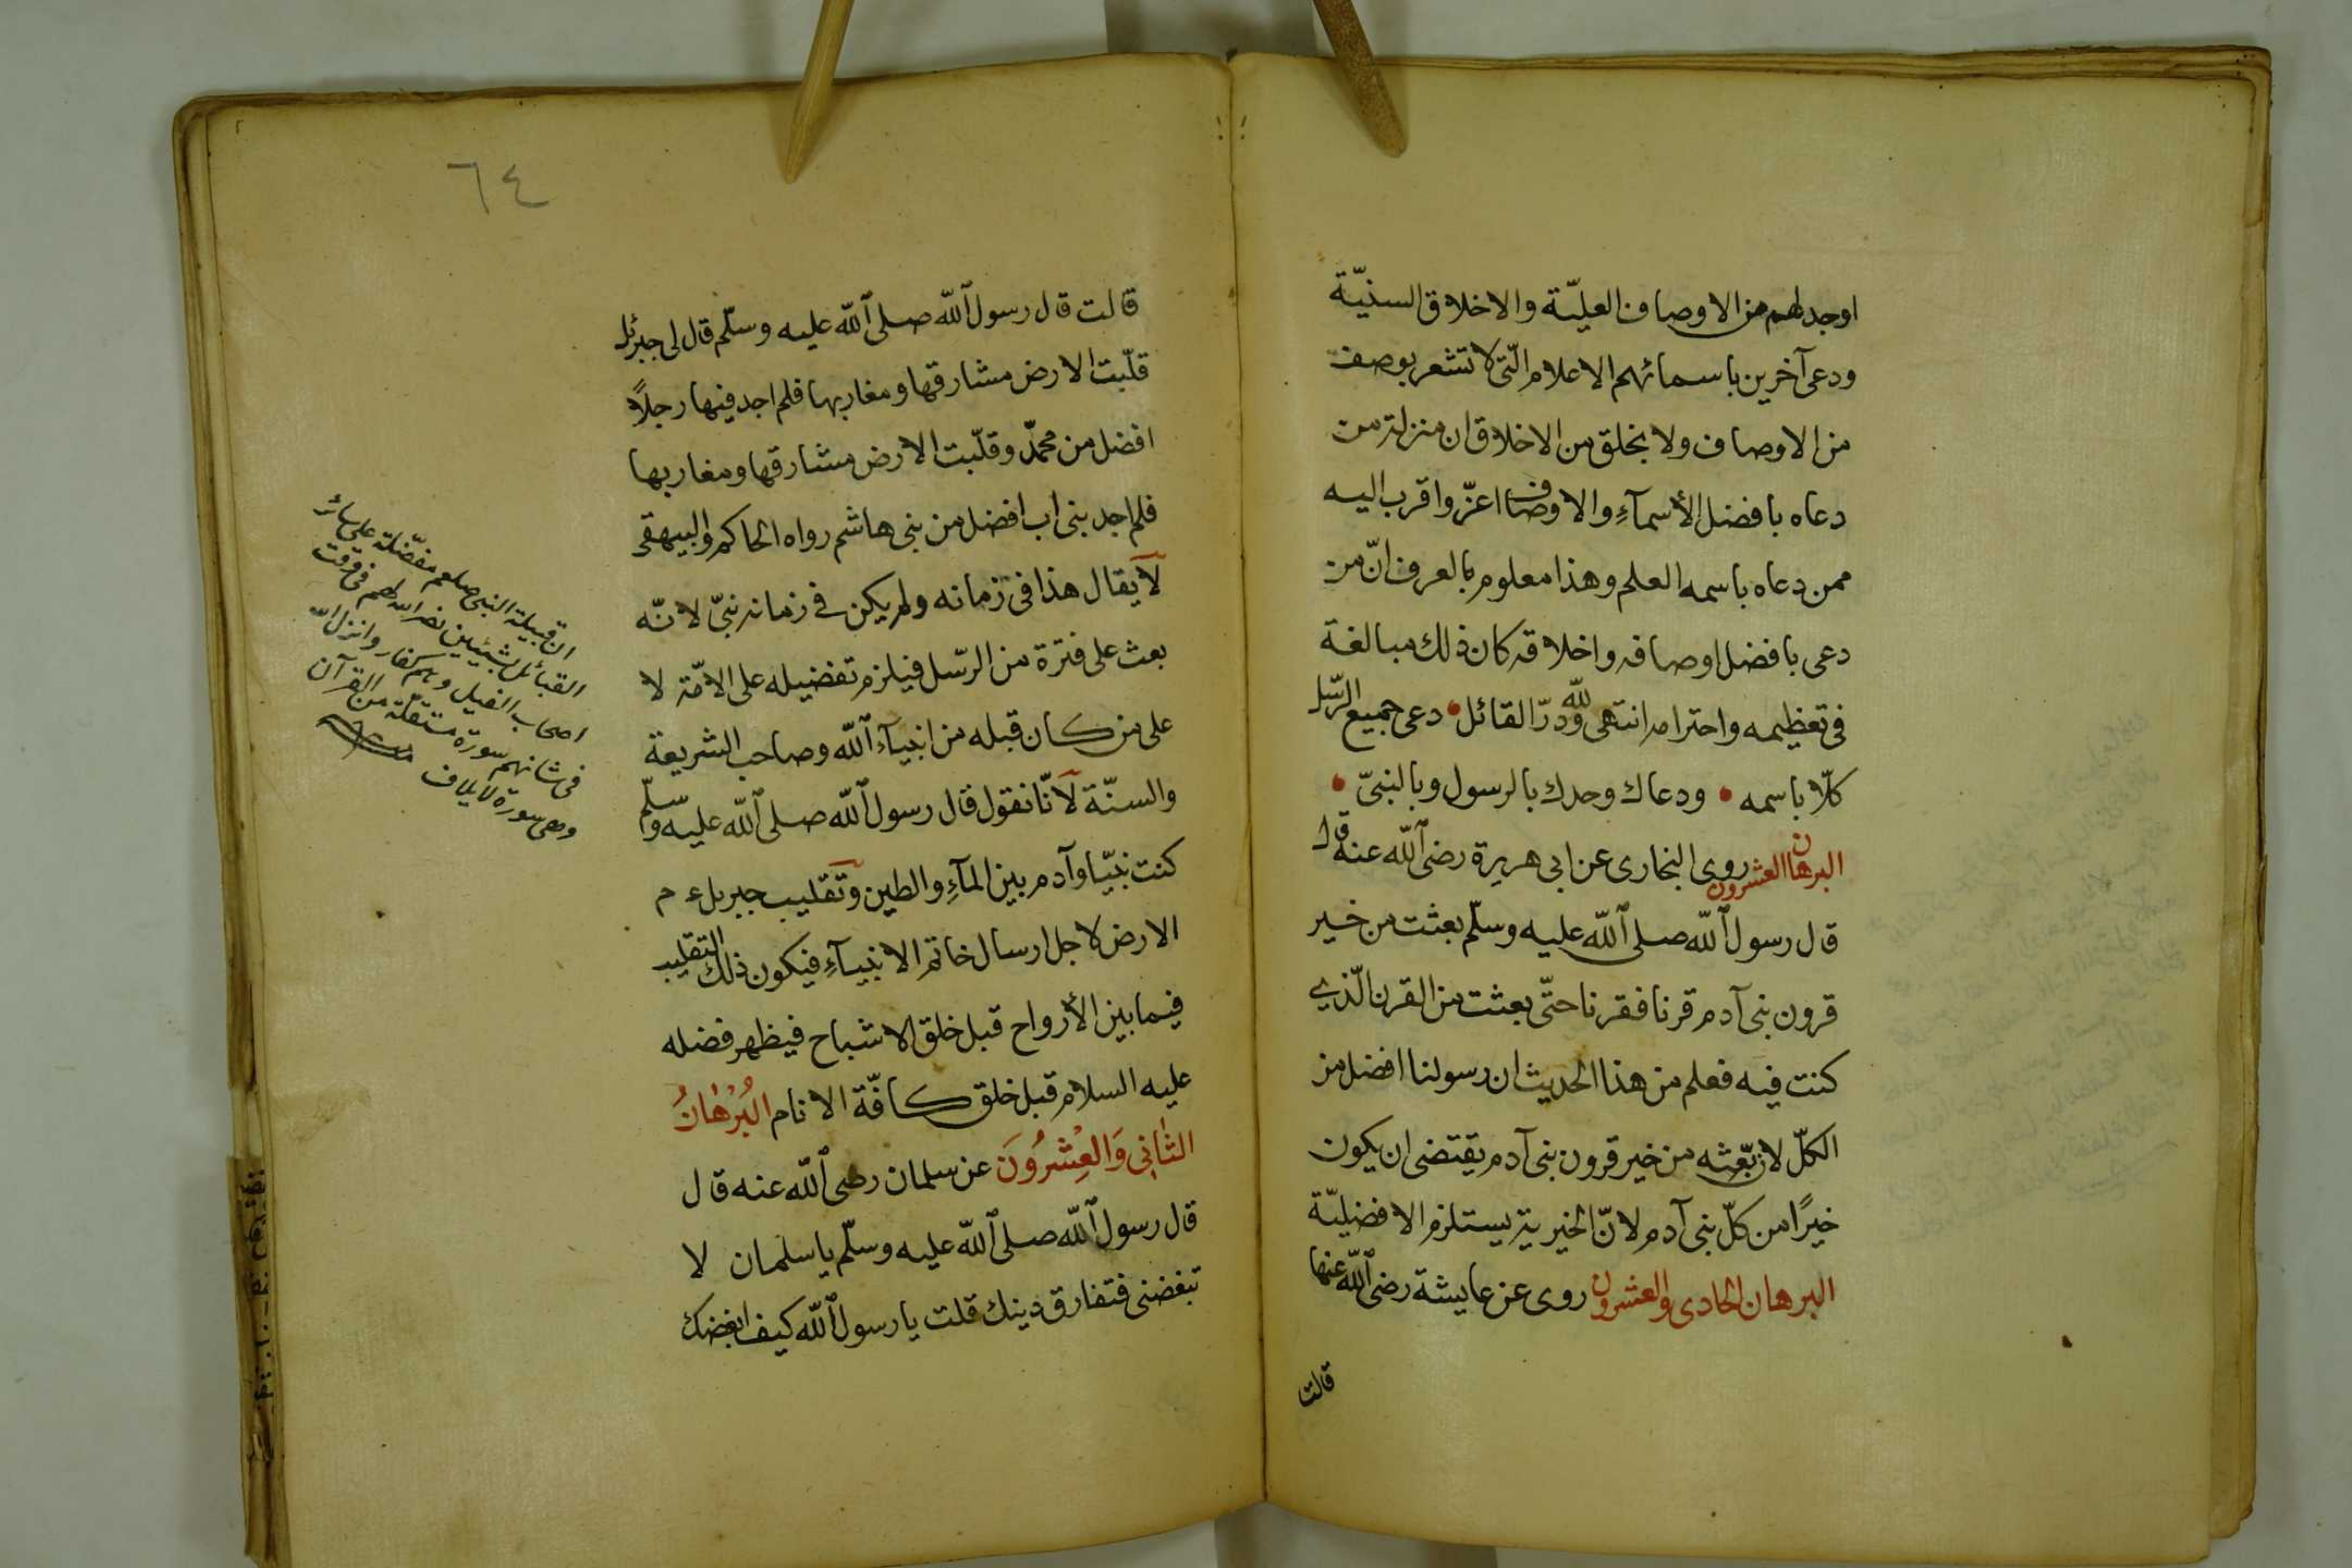 اوجد لهم من الاوصاف العليّة والاخلاق السنيّة
ودعى آخرين باسمائهم الاعلام الّتى لا تشعر بوصف
من الاوصاف ولا بخلق من الاخلاق ان منزلة من
دعاه بافضل الأسمآءِ والاوصاف اعزّ واقرب اليه
ممن دعاه باسمه العلم وهذا معلوم بالعرف انّ من
دعى بافضل اوصافه واخلاقه كان ذلك مبالغة
فى تعظيمه واحترامه انتهى ولله درّ القائل • دعى جميع الرّسل
كلّا باسمه • ودعاك وحدك بالرسول وبالنبىّ •
البرهان العشرون روى البخارى عن ابى هريرة رضى الله عنه قال
قال رسول الله صلى الله عليه وسلّم بعثت من خير
قرون بنى آدم قرنا فقرنا حتّى بعثت من القرن الّذي
كنت فيه فعلم من هذا الحديث ان رسولنا افضل من
الكلّ لان بعّثه من خير قرون بنى آدم يقتضى ان يكون
خيرًا من كلّ بنى آدم لانّ الخيرية يستلزم الافضليّة
البرهان الحادى والعشرون روى عن عايشة رضى الله عنها
قالت
٦٤
قالت قال رسول الله صلى الله عليه وسلّم قال لى جبرئل
قلّبت الارض مشارقها ومغاربها فلم اجد فيها رجلاً
افضل من محمدّ وقلّبت الارض مشارقها ومغاربها
فلم اجد بنى اب افضل من بنى هاشم رواه الحاكم والبيهقى
لا يقال هذا فى زمانه ولم يكن فى زمانه نبىّ لانّه
بعث على فترة من الرّسل فيلزم تفضيله على الامّة لا
على من كان قبله من انبيآء الله وصاحب الشريعة
والسنّة لانّا نقول قال رسول الله صلى الله عليه وسلّم
كنت نبيّا وآدم بين المآءِ والطين وتقليب جبريل ع م
الارض لاجل ارسال خاتم الانبيآءِ فيكون ذلك التقليب
فيما بين الأرواح قبل خلق الاشباح فيظهر فضله
عليه السلام قبل خلق كافّة الانام البُرْهَانُ
الثَّانِى وَالْعِشْرُونَ عن سلمان رضى الله عنه قال
قال رسول الله صلى الله عليه وسلّم يا سلمان لا
تبغضنى فتفارق دينك قلت يا رسول الله كيف ابغضك
ان قبيلة النبى صلعم مفضّلة على سائر
القبائل بشيئين نصر الله لهم فى وقت
اصحاب الفيل وهم كفار وانزل الله
فى شانهم سورة مستقلّة من القرآن
وهى سورة لايلاف